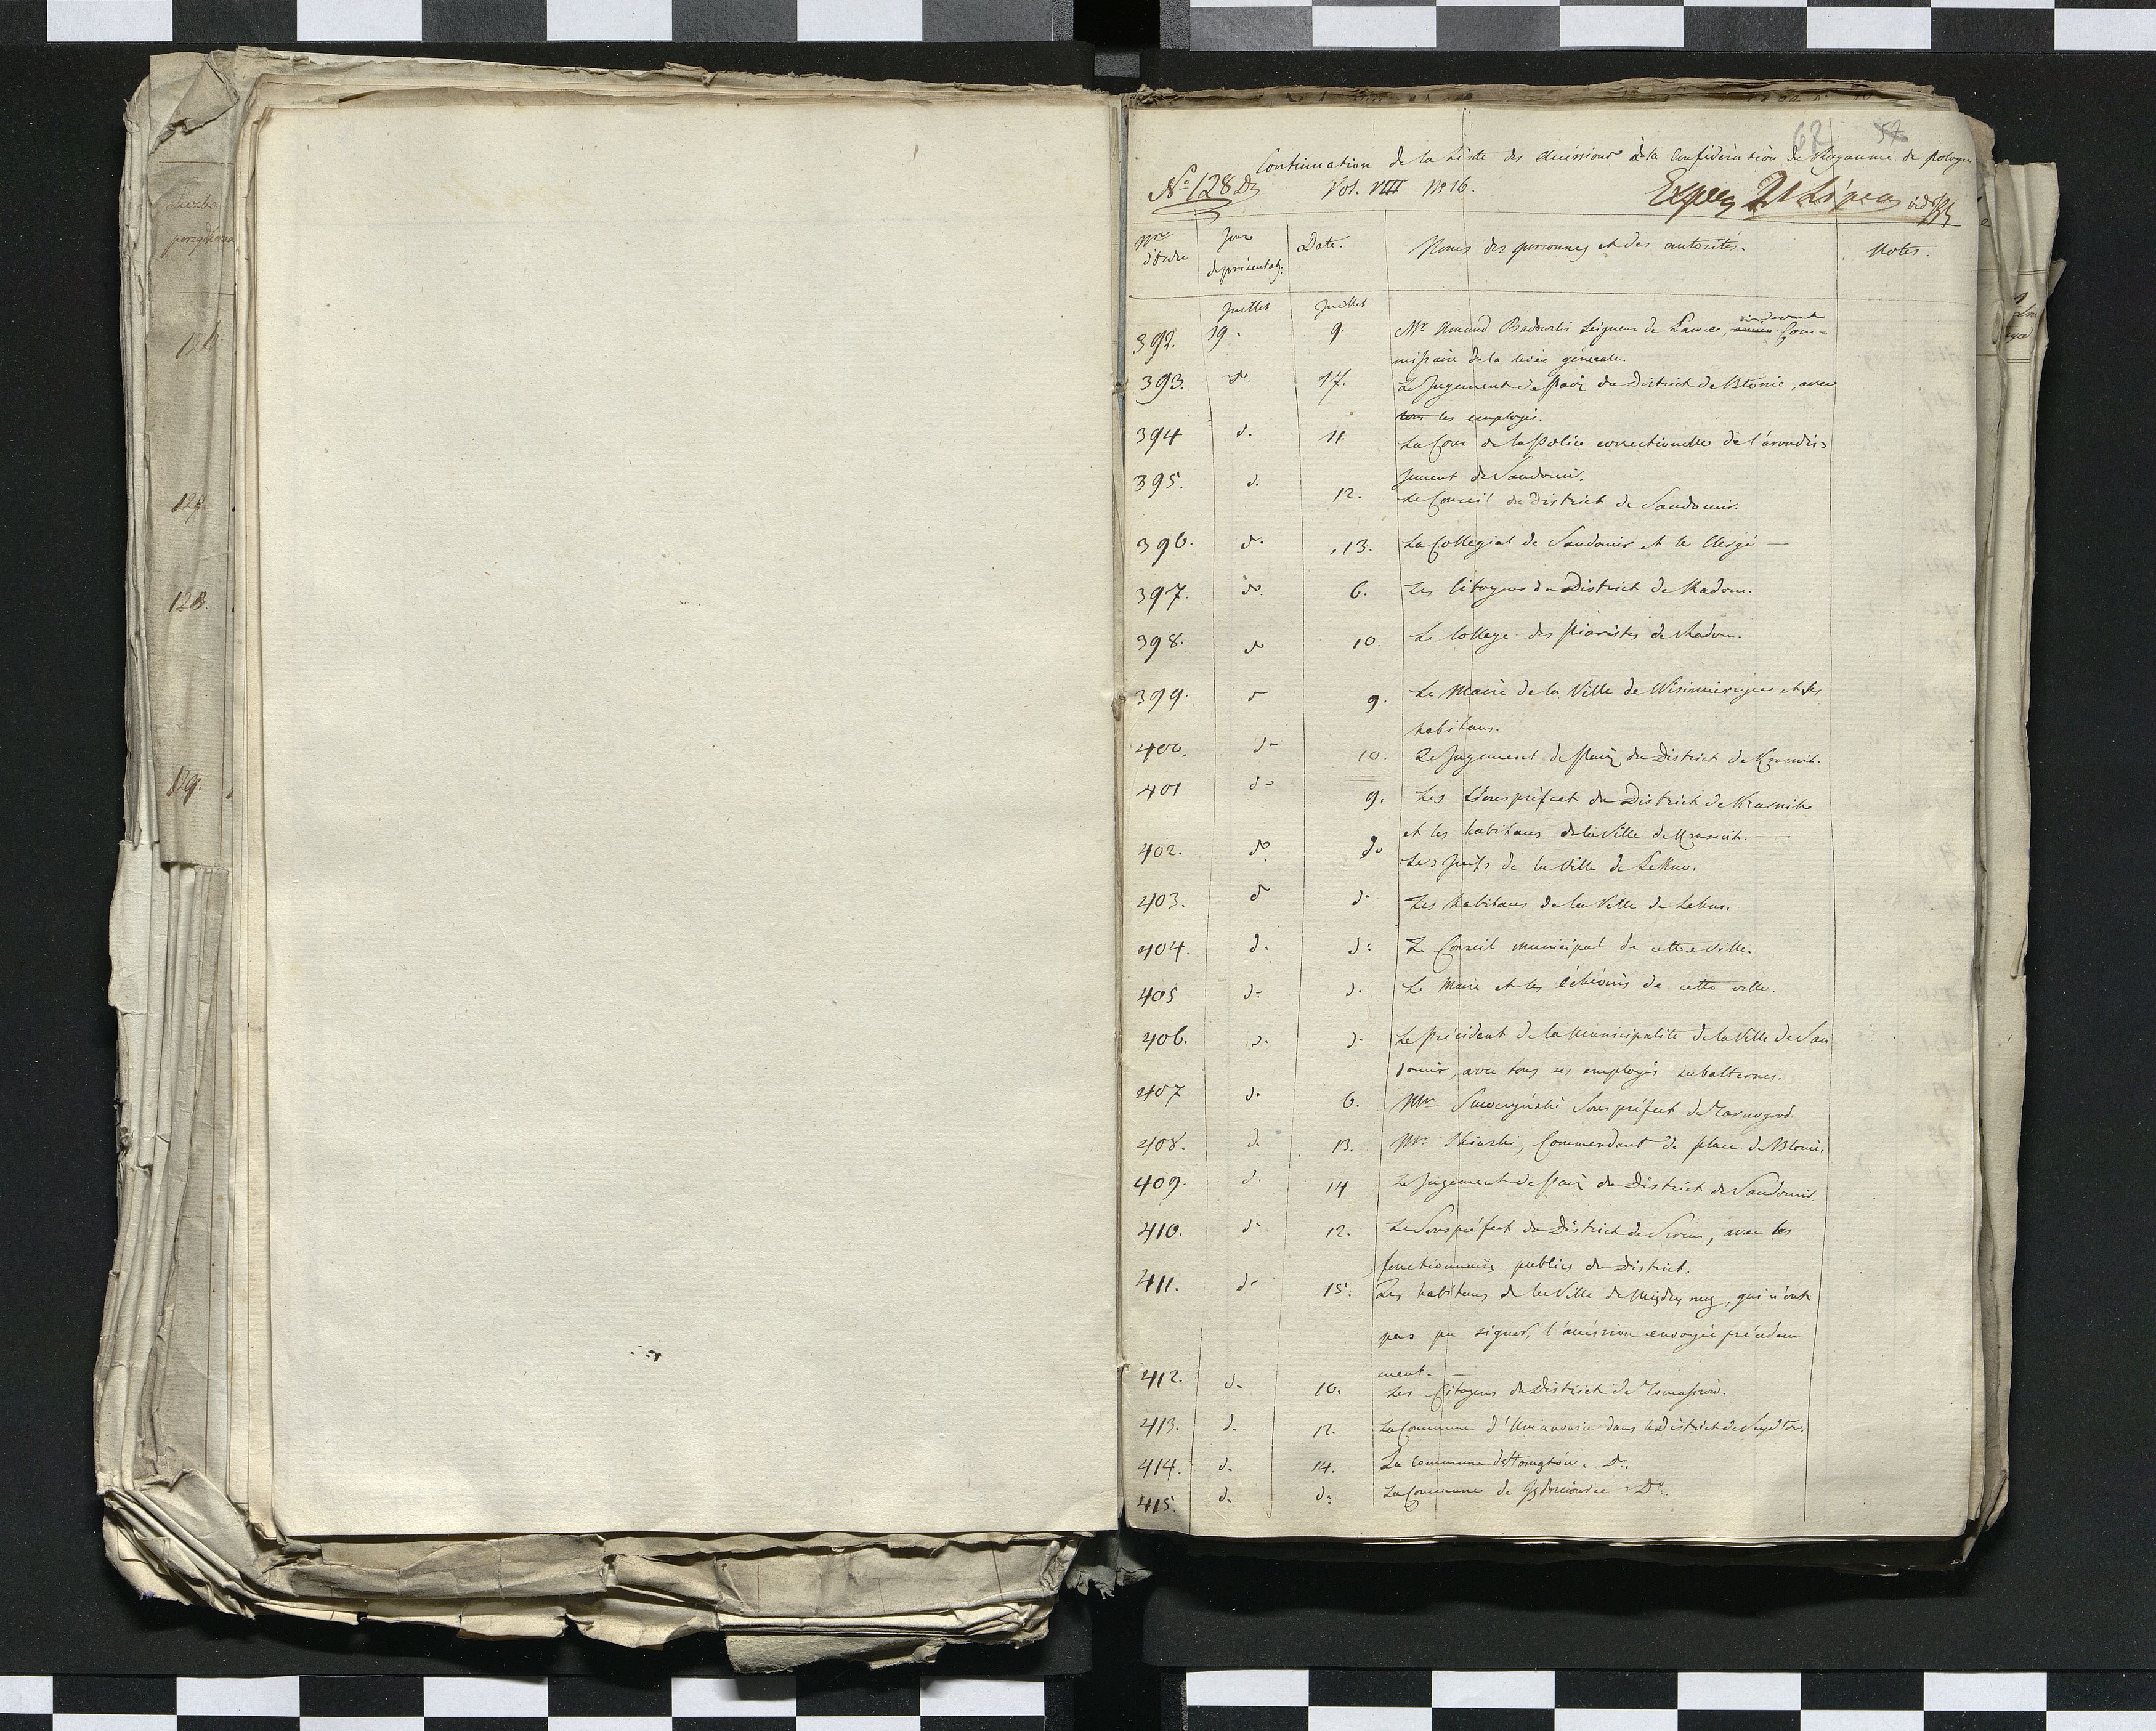 Liczba
porządkowa
127.
128.
129.
62 57
Continuation de la Liste des accéssions à la Confédération du Royaume de Pologne
No 128 Dz Vol. VIII No 16. Exped 21 Lipca
Nro d'ordre Jour de présentat: Date. Noms des personnes et des autorités. Notes.
Juillet Juillet
392. 19. 9. Mr Amand Badowski Seigneur de ci-devant Com-
missaire de la levée générale.
393. do 17. Le Jugement de Paix du District de Błonie, avec
tous les employés.
394 d. 11. La Cour de la Police correctionelle de l'arondis-
sement de Sandomir.
395. d. 12. Le Conseil du District de Sandomir.
396. do. 13. La Collegial de Sandomir et le Clergé —
397. do. 6. Les Citoyens du District de Radom.
398. do 10. Le College des Piaristes de Radom.
399. d 9. Le Maire de la Ville de et les
habitans.
400. do 10. Le Jugement de Paix du District de Krasnik.
401 do 9. Les Souspréfect du District de Krasnik
et les habitans de la Ville de Krasnik. —
402. do do Les Juifs de la Ville de Lekno.
403. d d. Les habitans de la Ville de Lekno.
404. d. d: Le Conseil municipal de cette ville.
405 d: d. Le Maire et les échevins de cette ville.
406. d. d. Le Président de la Municipalité de la Ville de San
domir, avec tous ses employés subalternes.
407 d. 6. Mr Souspréfect de Tarnogrod.
408. d. 13. Mr Skurski, Commendant de place de Błonie.
409. d. 14 Le Jugement de Paix du District de Sandomir.
410. d. 12. Le Souspréfect du District de avec les
fonctionnaires publics du District.
411. do 15. Les habitans de la Ville de Międzyrzyz, qui n'ont
pas pu signer, l'accéssion envoyée précédem
ment. —
412. d. 10. Les Citoyens du District de Tomaszow.
413. d. 12. La Commune d' dans le District de
414. d. 14. La Commune de Do.
415. d. d: La Commune de Do.